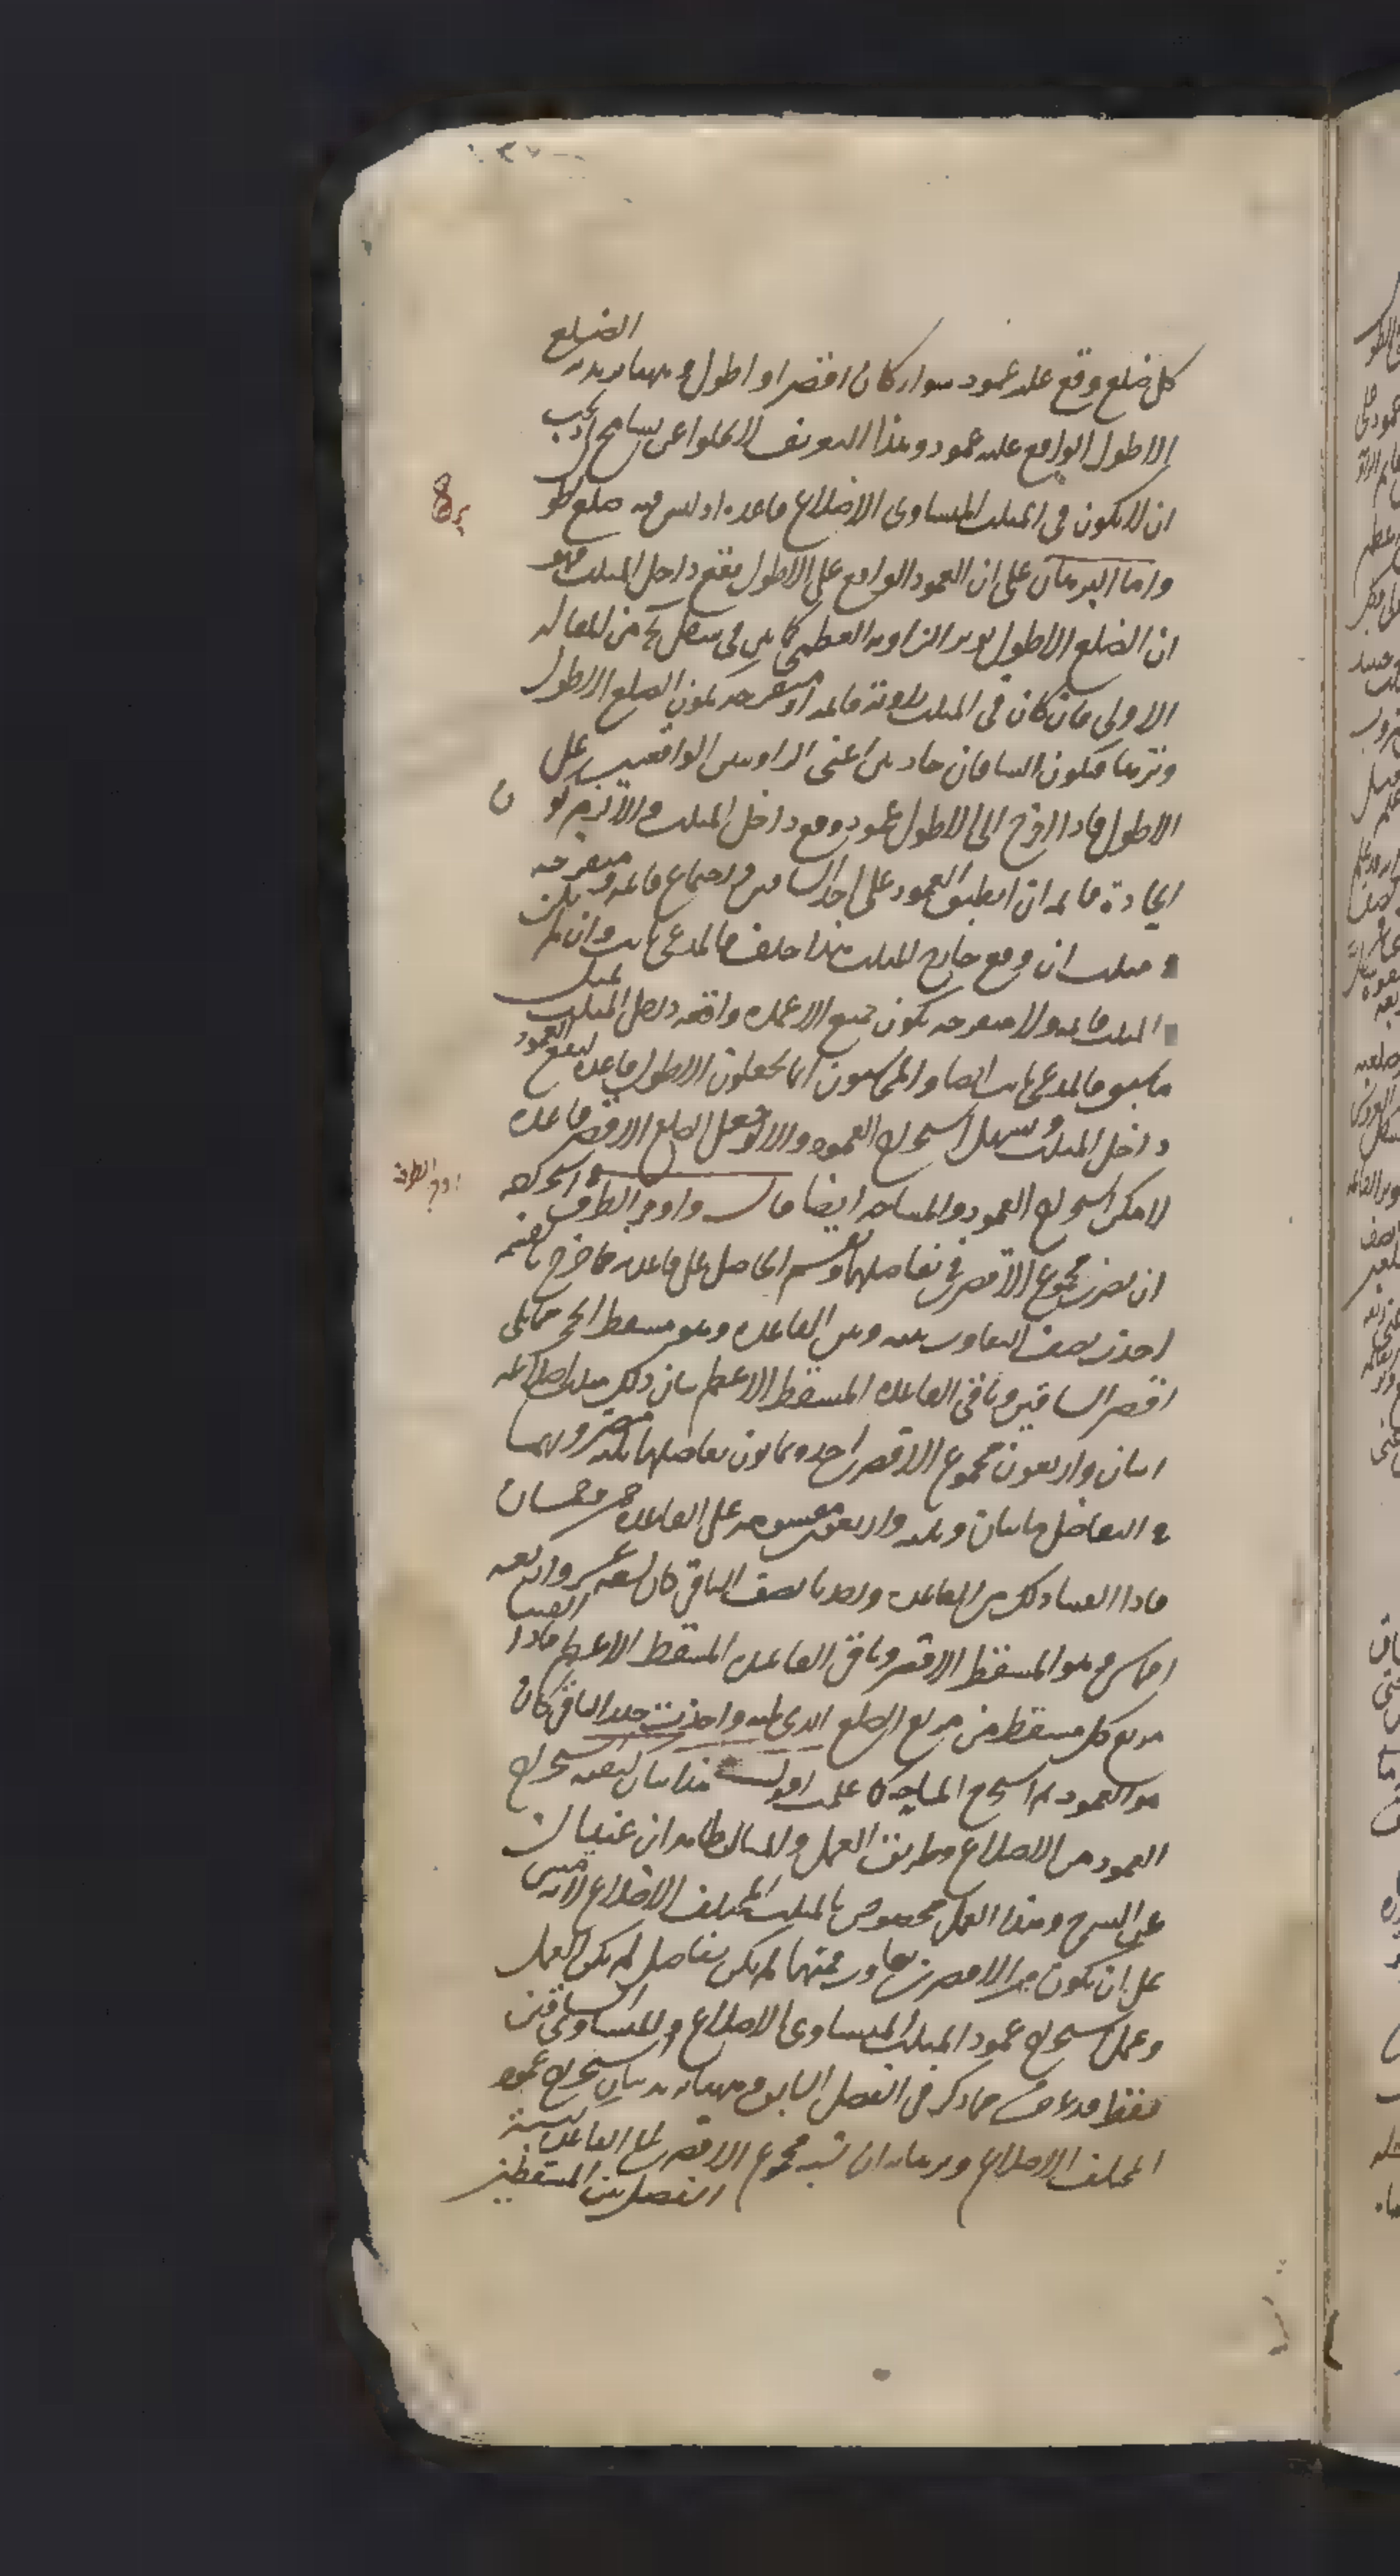 كل ضلع وقع عليه عمود سواء كان اقصر او اطول وههنا يريد به الضلع
الاطول الواقع عليه عمود وهذا التعريف لا يخلوا عن تسامح اذ يجب
ان لا يكون فى المثلث المتساوى الاضلاع قاعدة اذ ليس فيه ضلع اطو
واما البرهان على ان العمود الواقع على الاطول يقع داخل المثلث فهو
ان الضلع الاطول يوتر الزاوية العظمى كما بين فى شكل يح من المقالة
الاولى فان كان فى المثلث زاوية قايمة او منفرجة يكون الضلع الاطول
وترها فيكون الباقيان حادتين اعنى الزاويتين الواقعتين على
الاطول فاذا اخرج الى الاطول عمود وقع داخل المثلث والا لزم كو ن
الحادة قايمة ان انطبق العمود على احد الساقين و اجتماع قايمة ومنفرجة
فى مثلث ان وقع خارج المثلث هذا خلف فالمدعى ثابت وان لم يكن
المثلث قايمة ولا منفرجة يكون جميع الاعمدة واقعة داخل المثلث بمثل
ما سبق فالمدعى ثابت ايضا والمحاسبون انما يجعلون الاطول قاعدة ليقع العمود
داخل المثلث ويسهل استخراج العمود والا لو جعل الضلع الاقصر قاعدة
لامكن استخراج العمود والمساحة ايضا قال واوجز الطرق فى استخراجه
ان يضرب مجموع الاقصرين فى تفاضلهما ويقسم الحاصل على قاعدته فما خرج بالقسمة
اخذت نصف التفاوت بينه وبين القاعدة وهو مسقط الحجر مما يلى
اقصر الساقين وباقى القاعدة المسقط الاعظم بيان ذلك مثلث اضلاعه
اثنان واربعون مجموع الاقصرين احد وثمانون تفاضلهما ثلثة مضروبهما
فى التفاضل مايتان وثلثة واربعون مقسومه على القاعدة خمسة وخمسان
فاذا القينا ذلك من القاعدة واخذنا نصف الباقى كان تسعة عشر واربعة
اخماس وهو المسقط الاقصر وباقى القاعدة المسقط الاعظم فاذا القينا
مربع كل مسقط من مربع الضلع الذى يليه واخذت جذر الباقى كان
هو العمود ثم استخرج المساحة كما علمت اقول هذا بيان كيفية استخراج
العمود من الاضلاع وطريق العمل والمثال ظاهر ان غنيان
عن الشرح وهذا العمل مخصوص بالمثلث المختلف الاضلاع لانه مبنى
على ان يكون بين الاقصرين تفاوت فمتى لم يكن تفاضل لم يكن العمل
وعمل استخراج عمود المثلث المتساوى الاضلاع والمتساوى الساقين
فقط قد عرفت مما ذكر فى الفصل السابق وههنا يريد بيان استخراج عمود
المختلف الاضلاع وبرهانه ان نسبة مجموع الاقصرين الى القاعدة كنسبة
الفضل بين المسقطين